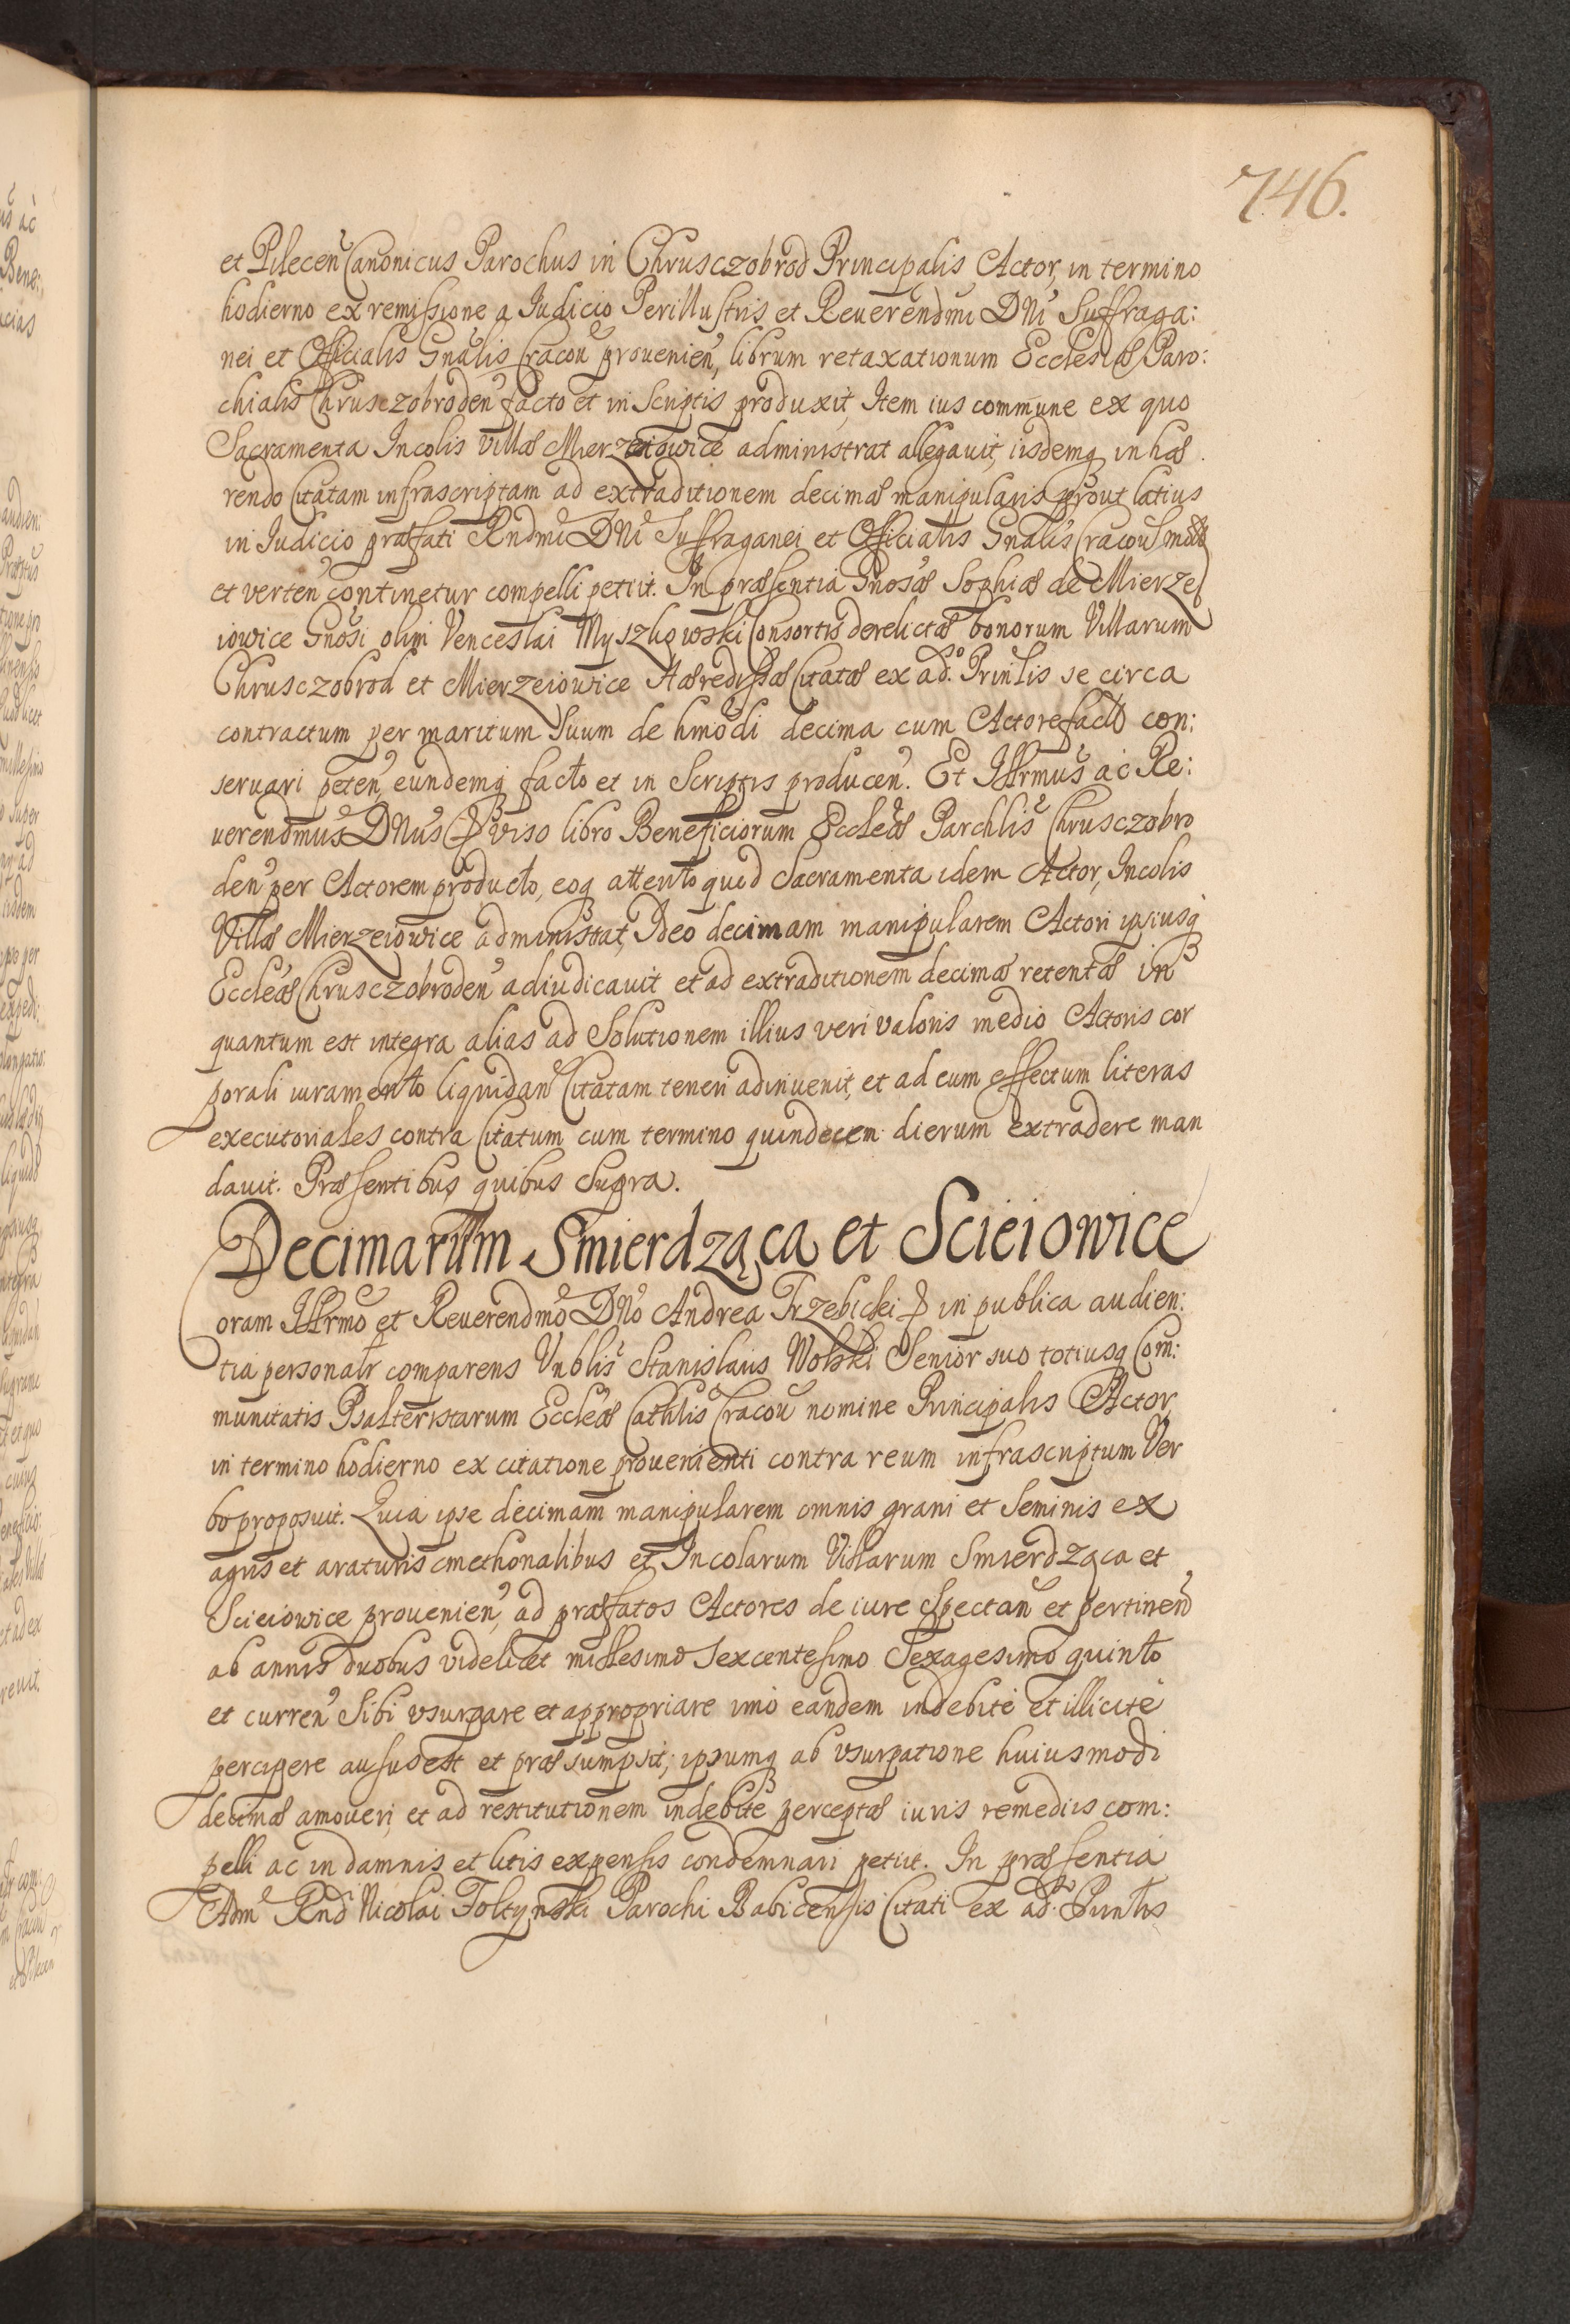 746.
et Pilecen̄ Canonicus Parochus in Chrusczobrod Principalis Actor, in termino
hodierno ex remissione a Iudicio Perillustris et Reuerendm̄i Dn̄i Suffraga:
nei et Officialis Gnālis Cracou̅ prouenien̄, librum retaxationum Ecclesiæ Paro:
chialis Chrusczobroden̄ facto et in Scriptis produxit, Item ius commune ex quo
Sacramenta Incolis Villæ Mierzeiowice administrat allegauit, iisdemq̨ inhæ
rendo Citatam infrascriptam ad extraditionem decimæ manipularis prout latius
in Iudicio præfati Rndm̄i Dn̄i Suffraganei et Officialis Gnālis Cracou̅
et verten̄ continetur compelli petiit. In præsentia Gnōsæ Sophiæ de Mierze
iowice Gnōsi olim Venceslai Myszkowski Consortis derelictæ bonorum Villarum
Chrusczobrod et Mierzeiowice Hæredissæ Citatæ ex ad.so Prin̄lis se circa
contractum per maritum Suum de hm̄odi decima cum Actore facto con:
seruari peten̄, eundemq̨ facto et in Scriptis producen̄. Et Illrm̄us ac Re:
uerendm̄us Dn̄us viso libro Beneficiorum Eccleæ Parchlis̄ Chrusczobro
den̄ per Actorem producto, eoq̨ attento quod Sacramenta idem Actor, Incolis
Villæ Mierzeiowice administrat, Ideo decimam manipularem Actori ipsiusq̨
Eccleæ Chrusczobroden̄ adiudicauit et ad extraditionem decimæ retentæ in
quantum est integra alias ad Solutionem illius veri valoris medio Actoris cor
porali iuramento liquidan̄ Citatam teneri adinuenit, et ad eum effectum literas
executoriales contra Citatum cum termino quindecem dierum extradere man
dauit. Præsentibus quibus Supra.
Decimarum Smierdząca et Scieiowice
Coram Illrm̄o et Reuerendm̄o Dn̄o Andrea Trzebicki in publica audien:
tia personalr̄ comparens Vnblis̄ Stanislaus Wolski Senior suo totiusq̨ Com̄:
munitatis Psalteristarum Eccleæ Cathlis̄ Cracou̅ nomine Principalis Actor,
in termino hodierno ex citatione prouenienti contra reum infrascriptum Ver
bo proposuit. Quia ipse decimam manipularem omnis grani et Seminis ex
agris et araturis cmethonalibus et Incolarum Villarum Smierdząca et
Scieiowice prouenien̄, ad præfatos Actores de iure Spectan̄ et pertinen̄
ab annis duobus videlicet millesimo Sexcentesimo Sexagesimo quinto
et curren̄ Sibi vsurpare et appropriare imò eandem indebitè et illicitè
percipere ausus est et præsumpsit; ipsumq̨ ab vsurpatione huiusmodi
decimæ amoueri, et ad restitutionem indebitè perceptæ iuris remediis com:
pelli ac in damnis et litis expensis condemnari petiit. In præsentia
Adm̄ Rnd̄ Nicolai Foltynski Parochi Babicensis Citati ex ad.so Prin̄lis